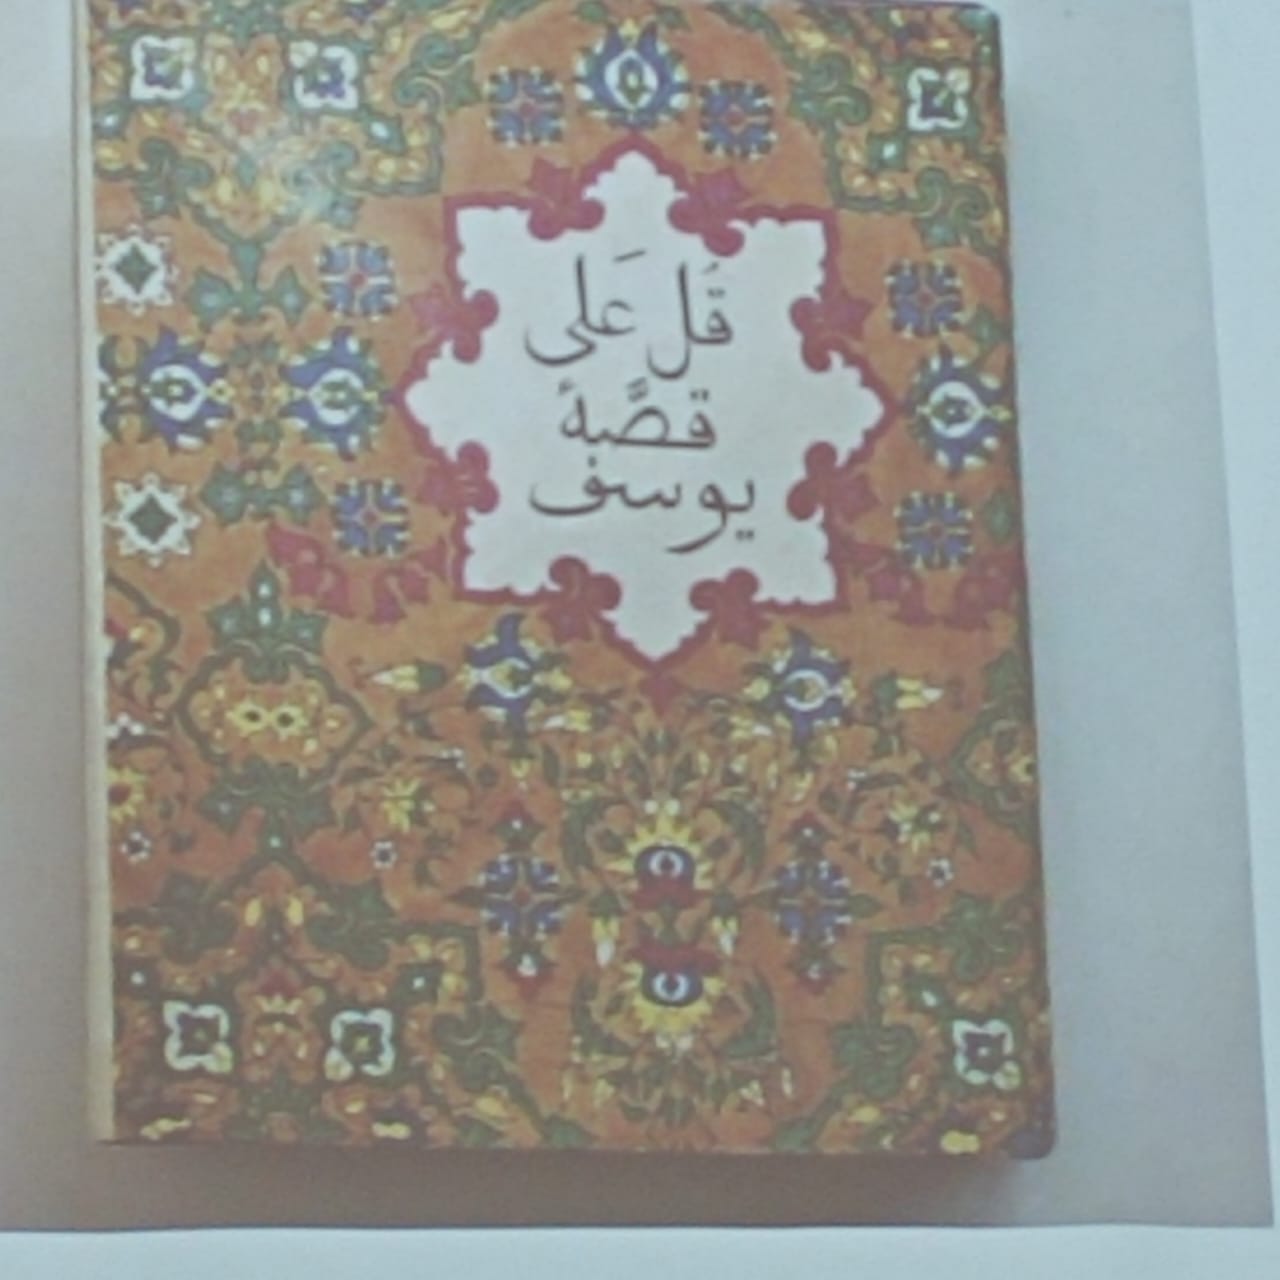 قُل عَلى
قصَّهً
يوسف